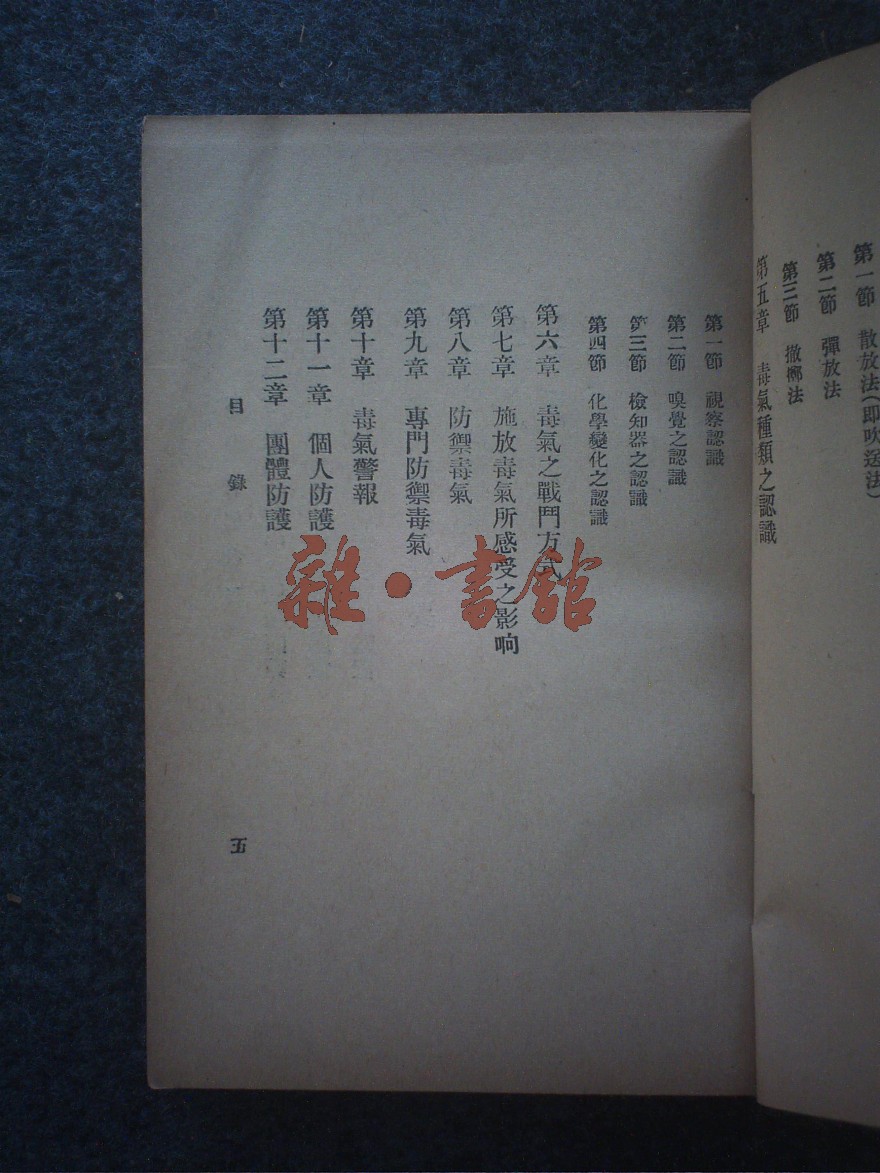 第一節　散放法(即吹送法)
第二節　彈放法
第三節　撤擲法
第五章　毒氣種類之認識
第一節　視察認識
第二節　嗅覺之認識
第三節　檢知器之認識
第四節　化學變化之認識
第六章　毒氣之戰鬥方式
第七章　施放毒氣所感受之影响
第八章　防禦毒氣
第九章　專門防禦毒氣
第十章　毒氣警報
第十一章　個人防護
第十二章　團體防護
目　錄
五
雜·書館